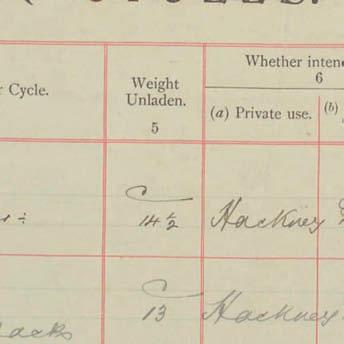 CYCLES.
Cycle.
Weight
Unladen.
5
Whether inten
6
(a) Private use.
(b)
c
14½
Hackney
c
13
Hackney